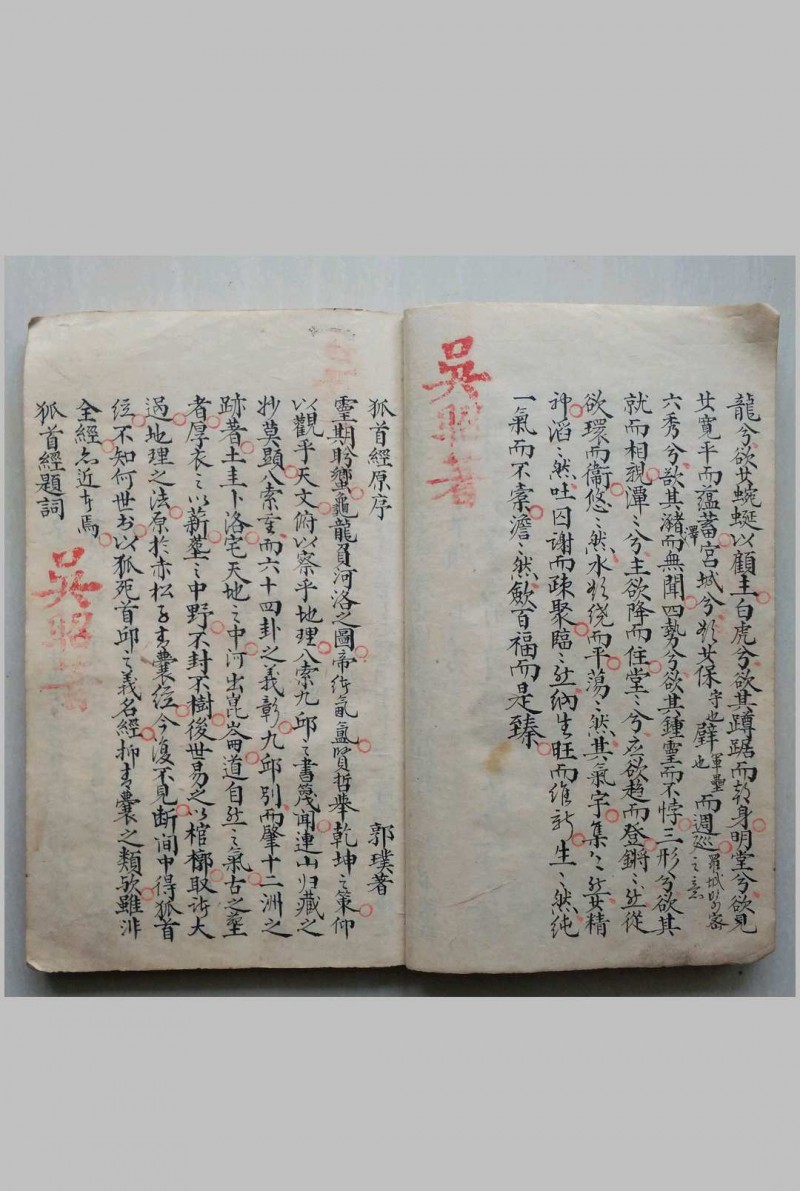 龍兮欲其蜿蜒以顧主白虎兮欲其蹲踞而幇身明堂兮欲見
其寬平而蘊蓄宮城兮欲其保守也壁軍壘也而週廵羅城
六秀兮欲其瀦澤而無聞四勢兮欲其鍾靈而不悖三形兮欲其
就而相親潭〻兮主欲降而住堂〻兮友欲趋而登鏘〻然從
欲環而衞悠〻然水欲绕而平蕩〻然其氣字集〻然其精
神滔〻然吐囚謝而疎聚臨〻然納生旺而维新生〻然纯
一氣而不紊澹〻然斂百福而是臻
吳
狐首經原序
郭璞著
靈期肹蠁龜龍負河洛之圖帝術氤氲賢哲舉乾坤之策仰
以觀乎天文俯以察乎地理八索九邱之書篾闻連山归藏之
妙莫顕八索玄而六十四卦之義彰九邱別而肇十二洲之
跡著土圭卜洛宅天地之中河出崑崙道自然之氣古之塟
者厚衣之以薪塟之中野不封不樹後世易之以棺槨取諸大
過地理之法原於赤松子青囊经今復不見断间中得狐首
经不知何世书以狐死首邱之義名經抑青囊之類欤雖非
全經忽近古焉
狐首經題詞
吳